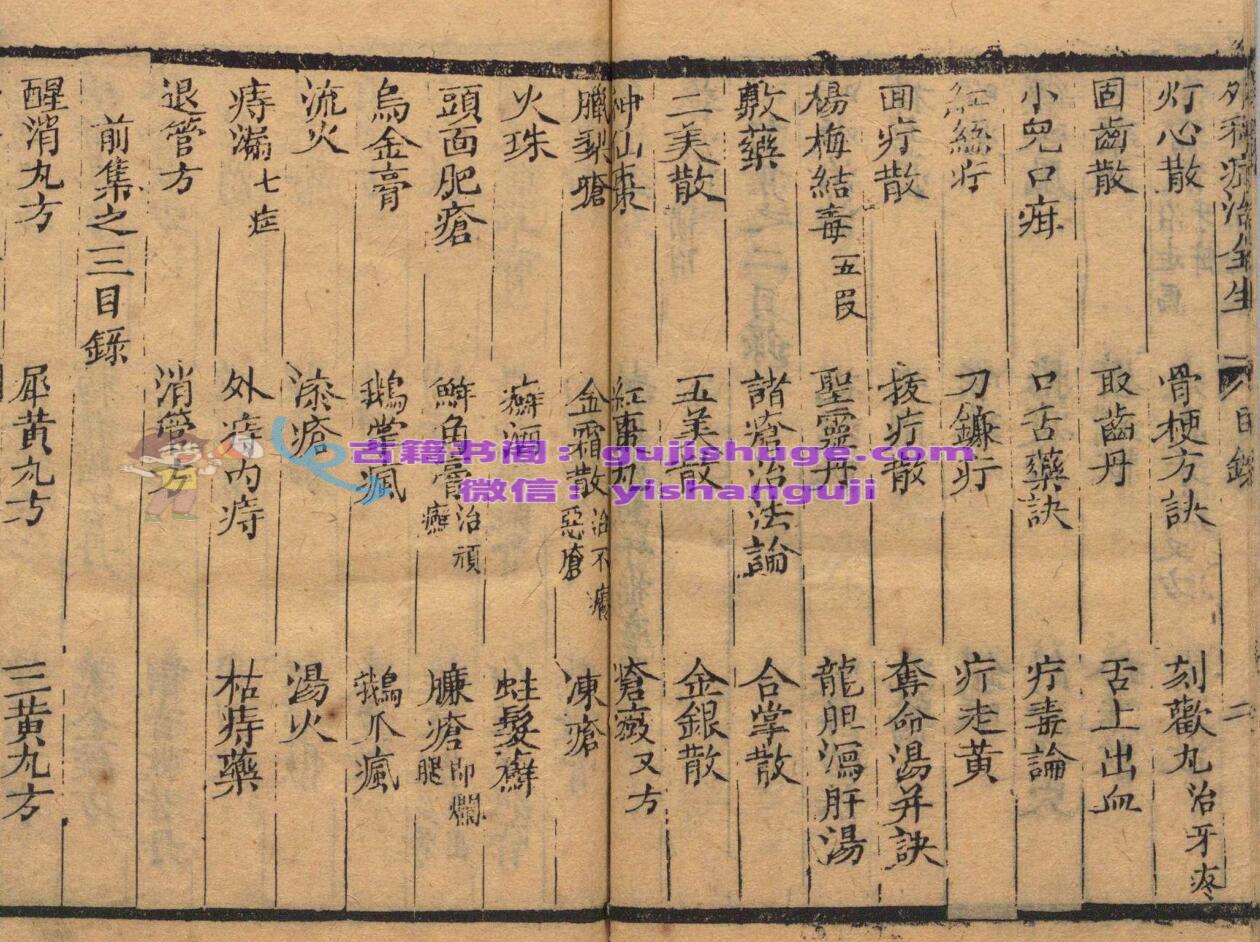 外科症治全生 目錄 二
灯心散 骨梗方訣 刻歡丸治牙疼
固齒散 取齒丹 舌上出血
小兒口疳 口舌藥訣 疔毒論
紅絲疔 刀鐮疔 疔走黃
面疔散 拔疔散 奪命湯并訣
楊梅結毒一五叚 聖靈丹 龍胆瀉肝湯
敷藥 諸瘡治法論 合掌散
二美散 五美散 金銀散
冲山棗 紅棗丸 瘡藥又方
臘梨瘡 金霜散治不癒惡瘡 凍瘡
火珠 癬酒 蛀髮癬
頭面肥瘡 鮮角膏治頑癬 臁瘡即爛腿
烏金膏 鵝掌瘋 鵝爪瘋
流火 漆瘡 湯火
痔漏七症 外痔內痔 枯痔藥
退管方 消管方
前集之三目錄
醒消丸方 犀黃丸方 三黃丸方
古籍书阁：gujishuge.com
微信：yishanguji